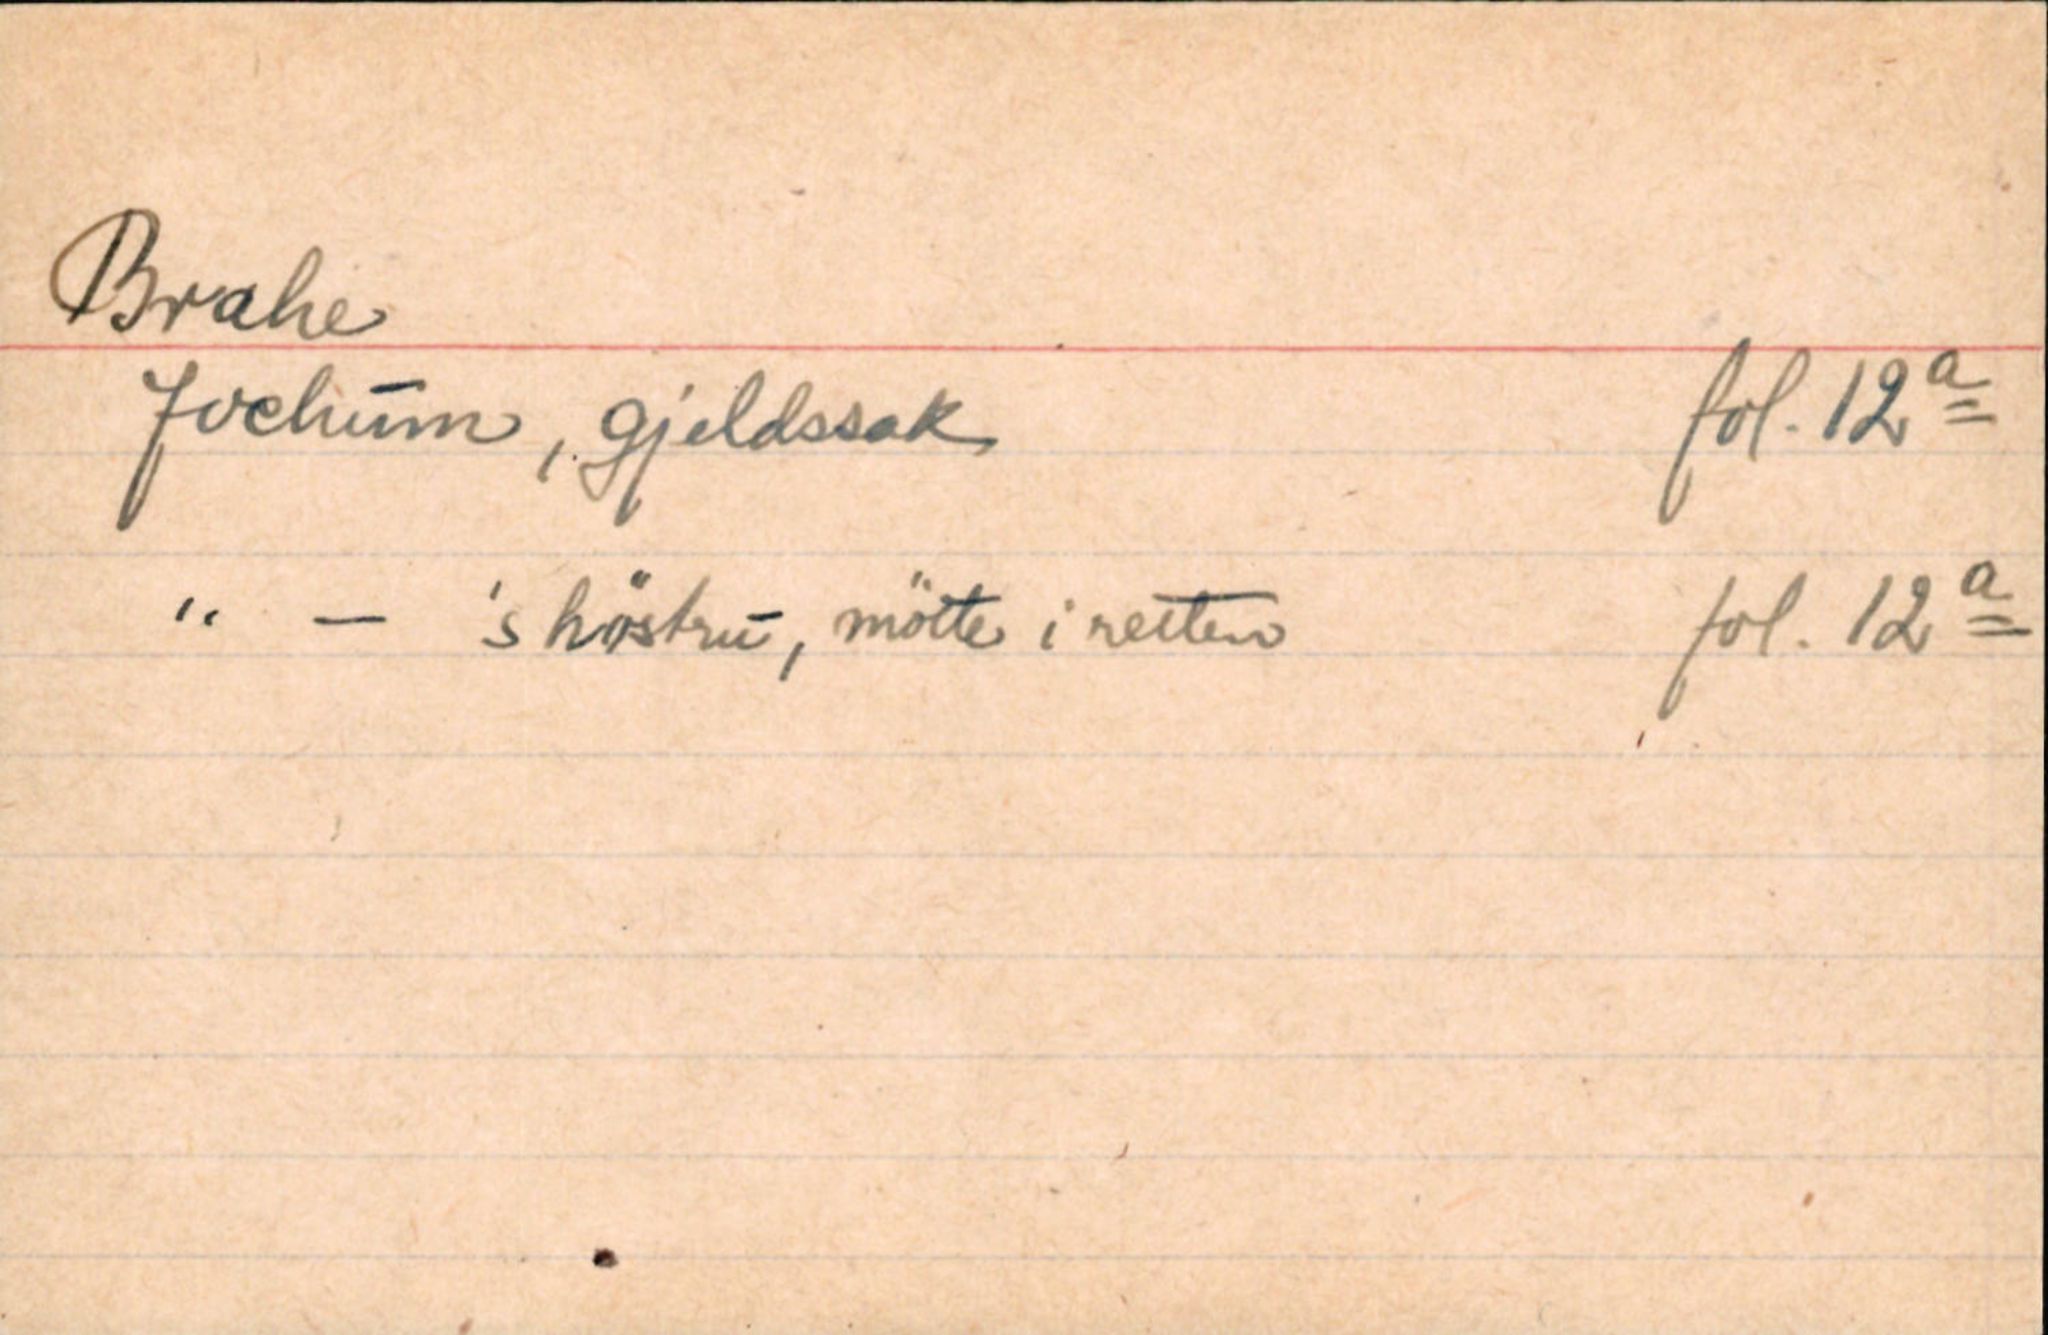 Brahe
Jochum, gjeldssak fol. 12a
" — 's höstru, mötte i retten fol. 12a